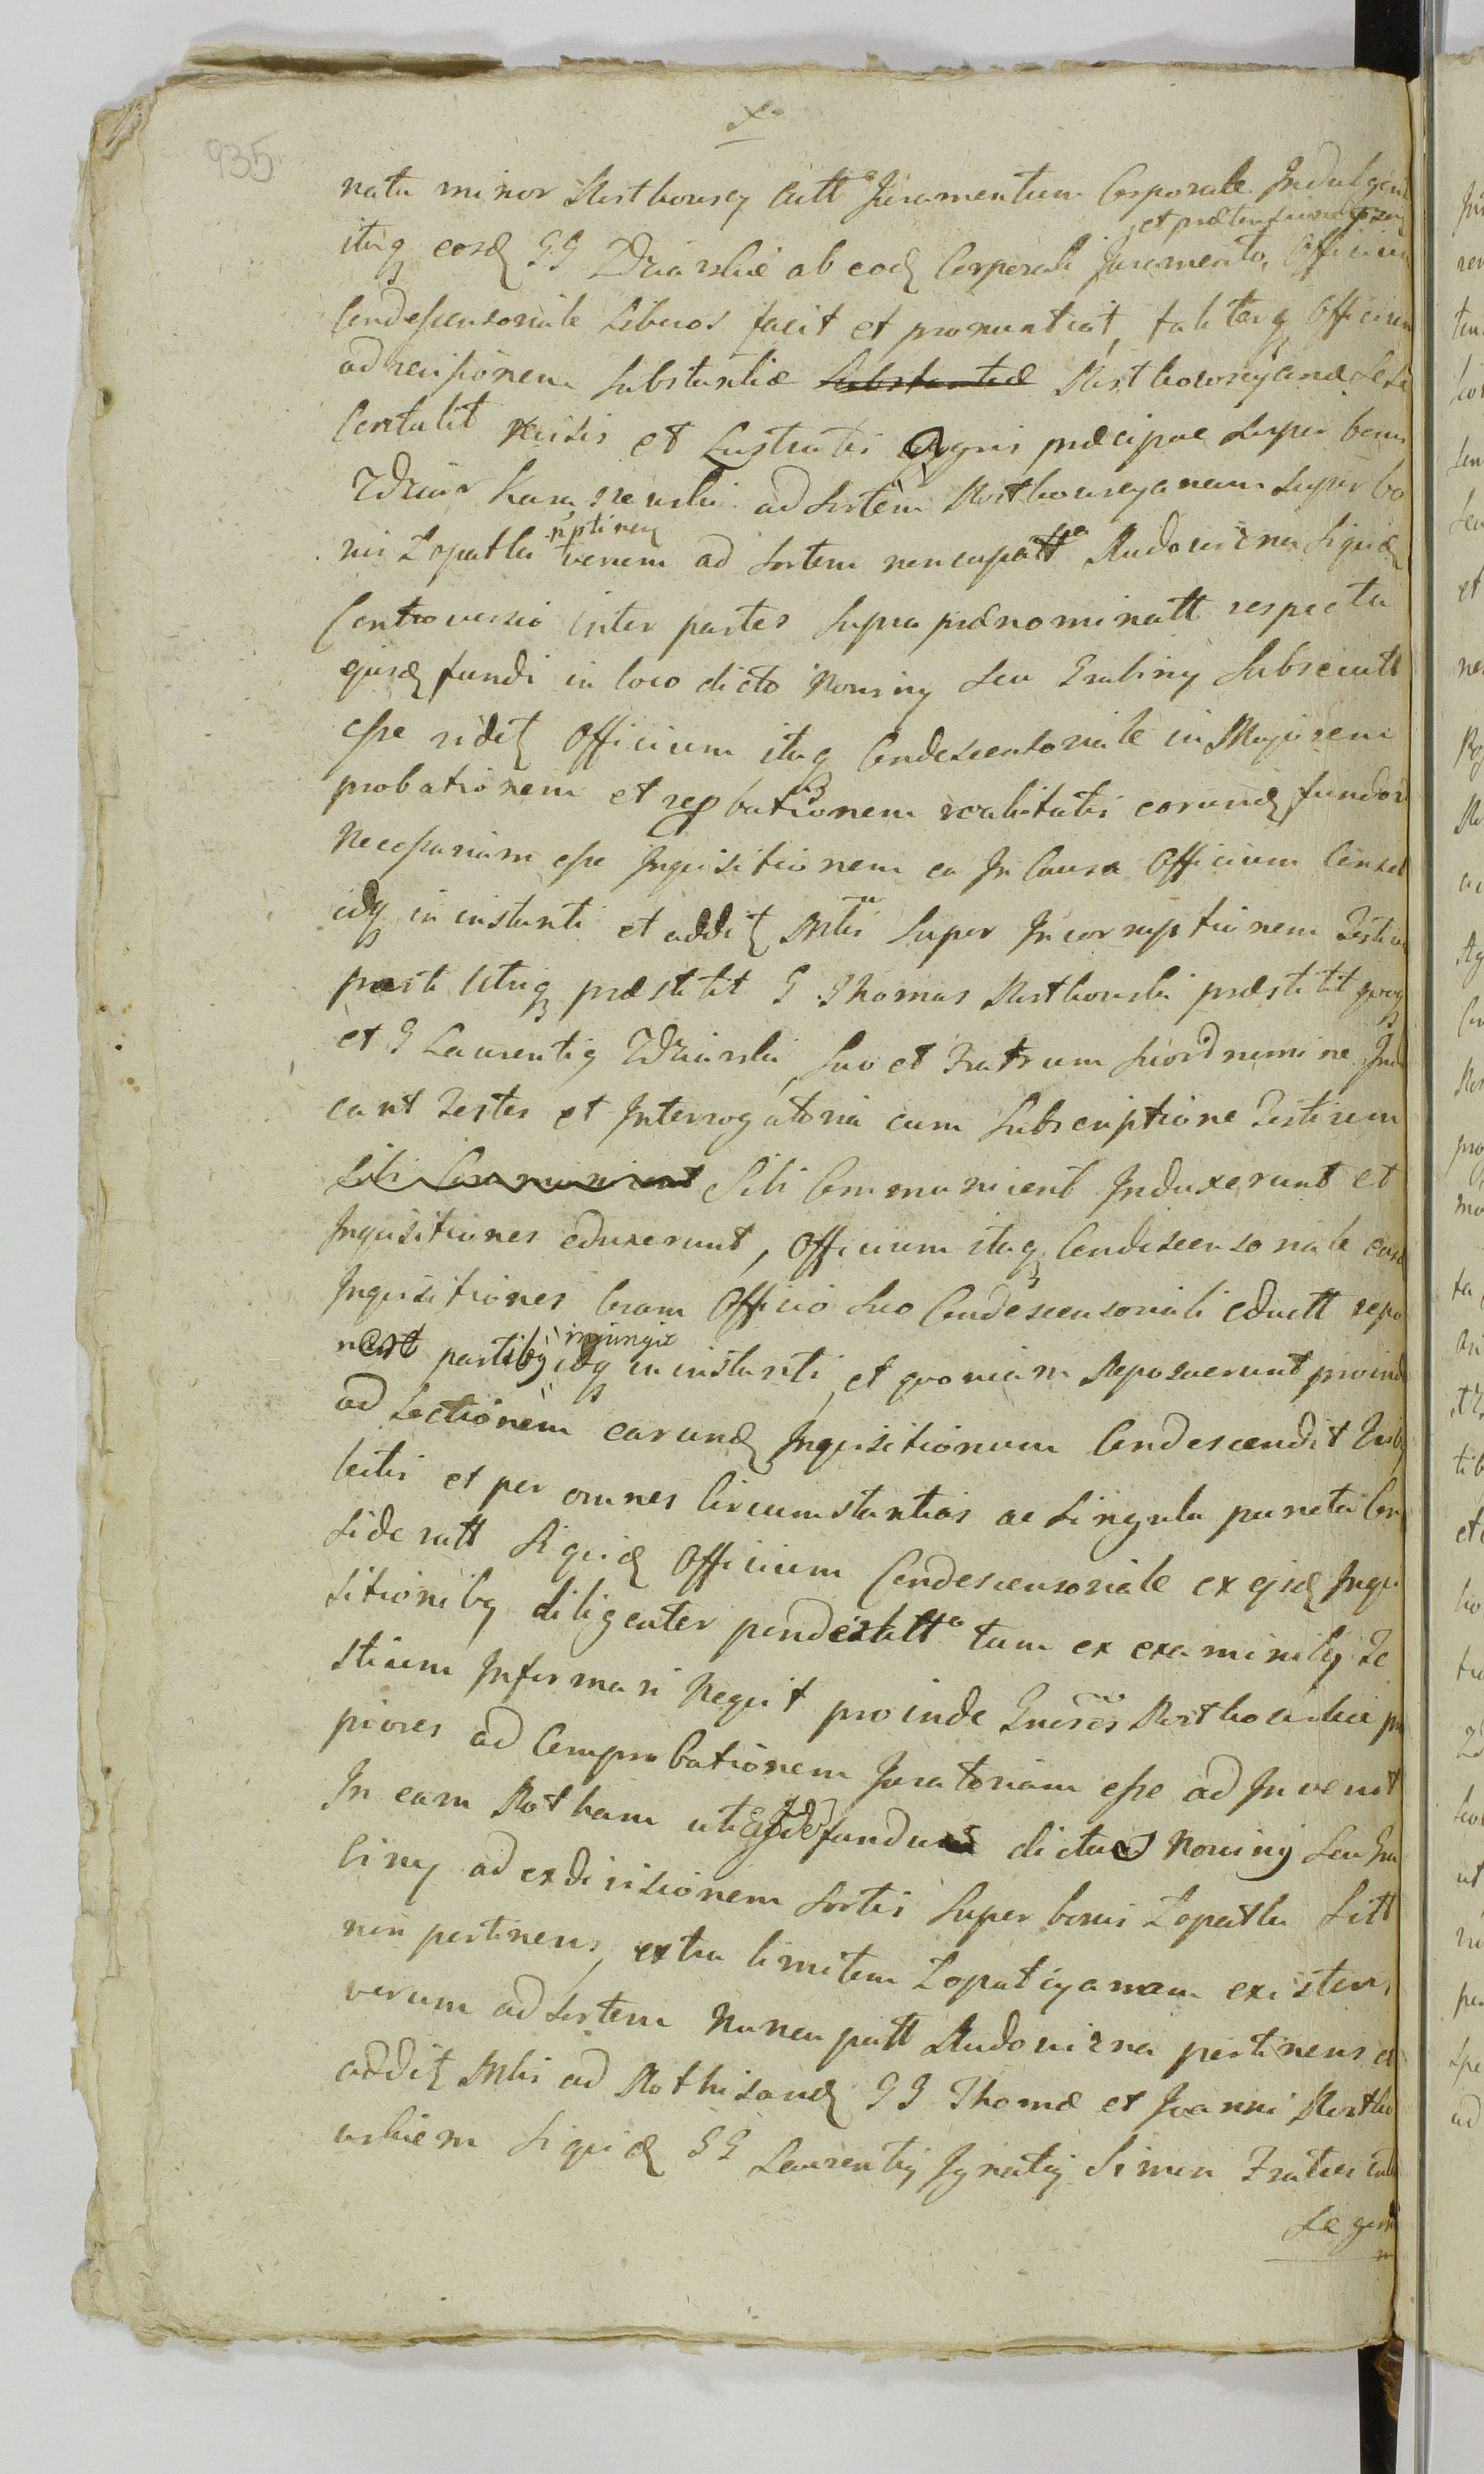 935
natu minor Rostkowscy Citt Juramentum Corporale Indulgent
et prætensione
itaq eosd GG Zdziarskie ab eod Corporali Juramento, Officium
Condescensoriale Liberos facit et pronuntiat, taliterq Officium
ad revisionem Substantiæ Substantiæ Rostkowscyanæ Sese
Contulit Revisis et Lustratis Agris præcipue Super bonis
Zdziar Kara ad Sortem Rostkowscyanam Super bo
n ptinen
nis Lopatki verum ad Sortem nuncupatt Rudowizna Siquid
Controversia inter partes Supra prænominatt respectu
ejusd fundi in loco dicto Nowiny Seu Grabiny Subsecutt
esse videt Officium itaq Condescensoriale in Majorem
probationem et reprobationem realitatis eorund fundor
Necessarium esse Inquisitionem ea In Causa Officium Censet
idq in instanti et addit Mtri Super Incorruptionem Testiu
parti Utriq præstitit G Thomas Rostkowski præstitit quoq
et G Laurentig Zdziarski, Suo et Fratrum Suord nomine Indu
cant Testes et Interrogatoria cum Subscriptione Testium
Sibi Communicent Sibi Communicent Induxerunt et
Inquisitiones eduxerunt, Officium itaq Condescensoriale easd
Inquisitiones Coram Officio Suo Condescensoriali eductt repo
injungit
nant partibg idq in instanti, et quoniam Reposuerunt proinde
ad Lectionem earund Inquisitionum Condescendit Quibg
lectis et per omnes Circumstantias ac Singula puncta Con
sideratt Siquid Officium Condescensoriale ex ejsd Inqui
sitionibg diligenter ponderatt tum ex examinibg Te
stium Informari Nequit proinde Gnsos Rostkowskie pro
piores ad Comprobationem Juratoriam esse ad Invenit
In eam Rotham uti fundus dictus Nowiny Seu Gra
biny ad exdivisionem Sortis Super bonis Lopatki Sitt
non pertinens, extra limitem Lopatcyanam existens,
verum ad Sortem Nuncupatt Rudowizna pertinens et
addit Mtri ad Rothisand GG Thomæ et Joanni Rostko
wskiem Siquid GG Laurentig Ignatig Simon Fratres
Se gerin